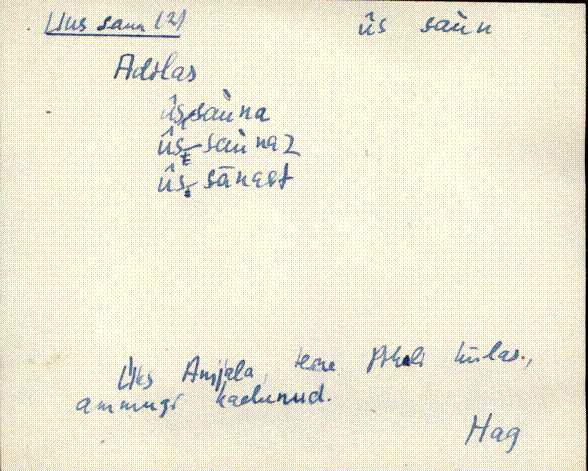 Uus saun (2) ûs saùn
Adilas
ûs saùna
ûs saùnaz
ûs sānast
Üks Anijala, teine Pikeli külas,
ammugi kadunud.
Hag